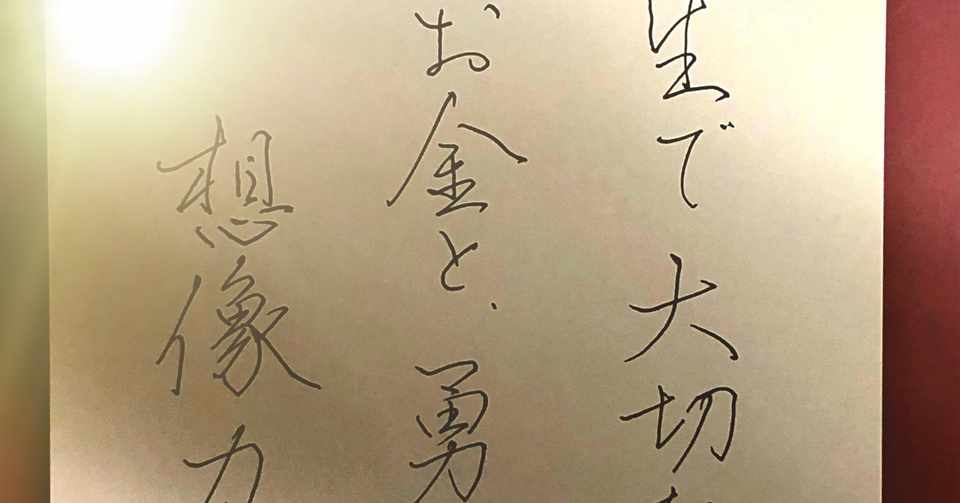 生で大切な
お金と、勇
想像力